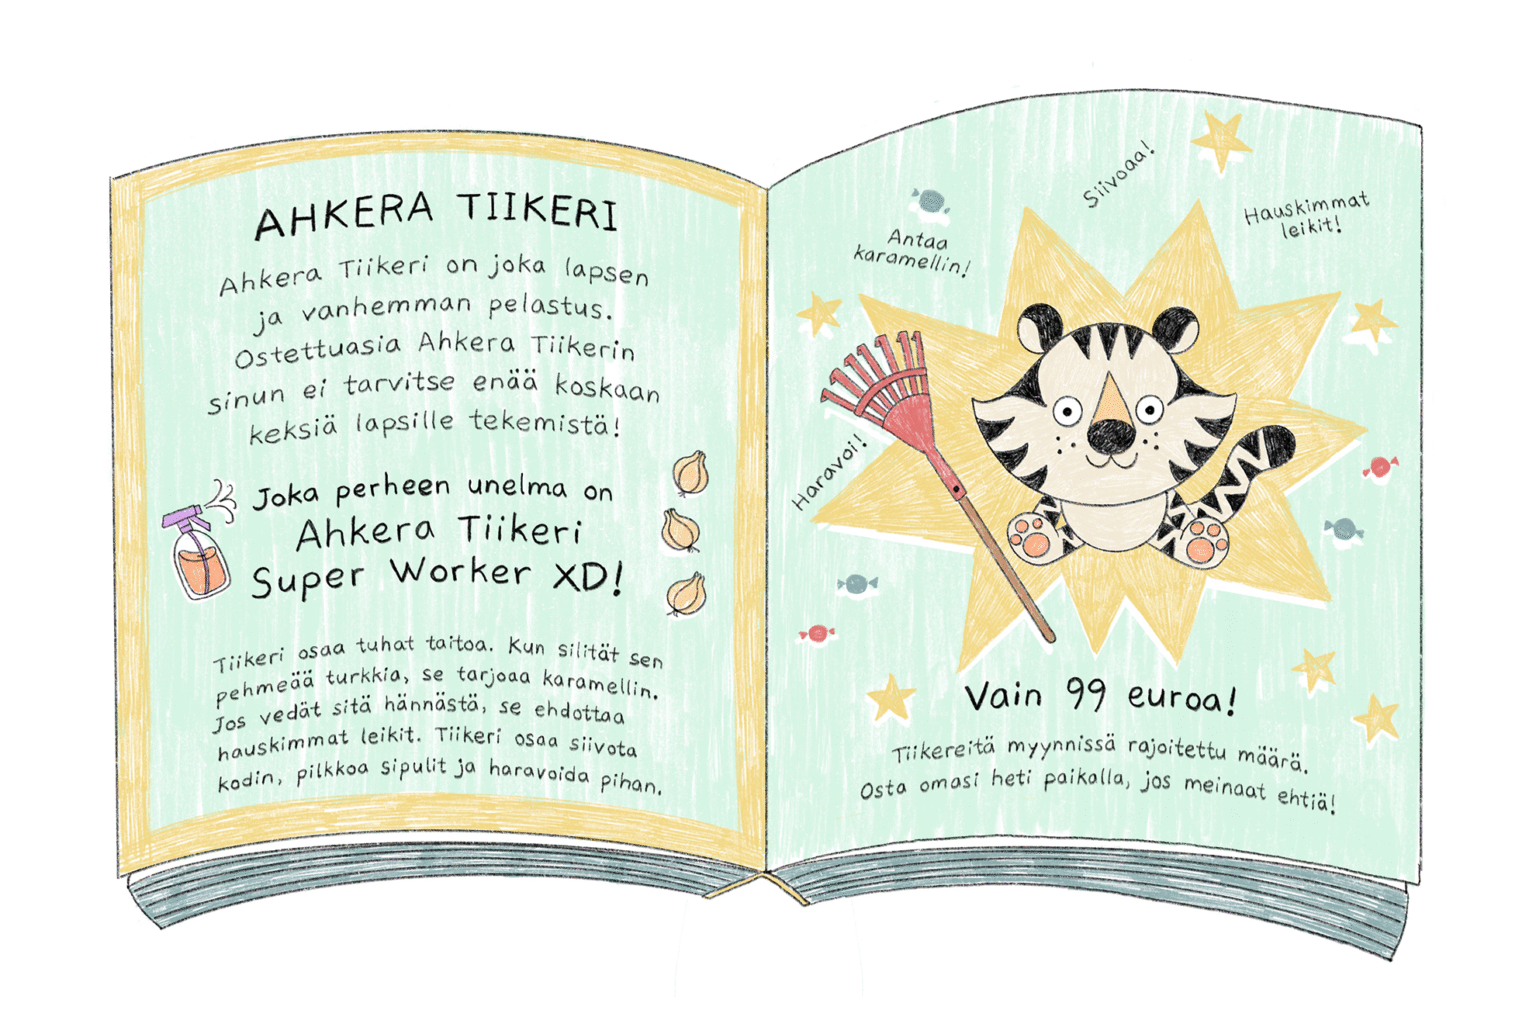 AHKERA TIIKERI
Ahkera Tiikeri on joka lapsen
ja vanhemman pelastus.
Ostettuasia Ahkera Tiikerin
sinun ei tarvitse enää koskaan
keksiä lapsille tekemistä!
Joka perheen unelma on
Ahkera Tiikeri
Super Worker XD!
Tiikeri osaa tuhat taitoa. Kun silität sen
pehmeää turkkia, se tarjoaa karamellin.
Jos vedät sitä hännästä, se ehdottaa
hauskimmat leikit. Tiikeri osaa siivota
kodin, pilkkoa sipulit ja haravoida pihan.
Siivoaa!
Hauskimmat
leikit!
Antaa
karamellin!
Haravoi!
Vain 99 euroa!
Tiikereitä myynnissä rajoitettu määrä.
Osta omasi heti paikalla, jos meinaat ehtiä!